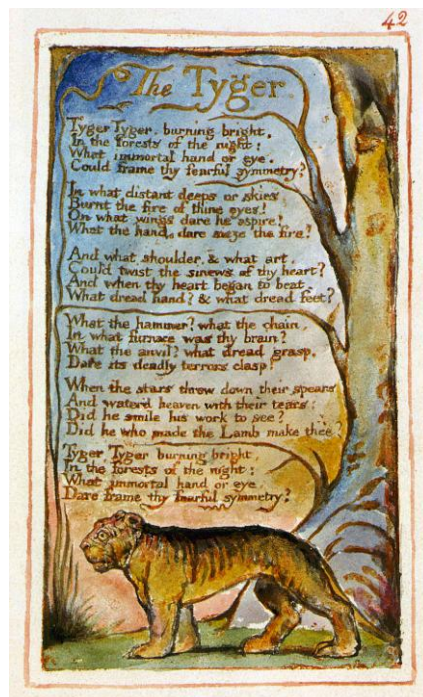 42
The Tyger
Tyger Tyger. burning bright,
In the forests of the night:
What immortal hand or eye.
Could frame thy fearful symmetry?
In what distant deeps or skies
Burnt the fire of thine eyes!
On what wings dare he aspire!
What the hand, dare seize the fire?
And what shoulder, & what art,
Could twist the sinews of thy heart?
And when thy heart began to beat.
What dread hand? & what dread feet?
What the hammer? what the chain,
In what furnace was thy brain?
What the anvil? what dread grasp.
Dare its deadly terrors clasp!
When the stars threw down their spears
And water'd heaven with their tears:
Did he smile his work to see?
Did he who made the Lamb make thee?
Tyger Tyger burning bright,
In the forests of the night:
What immortal hand or eye
Dare frame thy fearful symmetry?